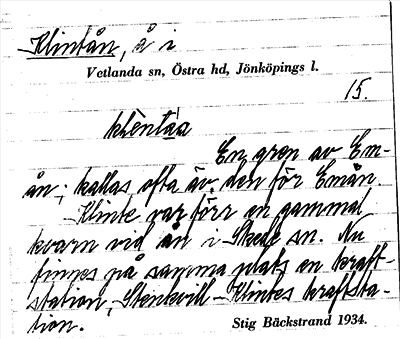 Klintån, å i
Vetlanda sn, Östra hd, Jönköpings l.
15.
En gren av Em-
ån; kallas ofta äv. den för Emån.
Klinte var förr en gammal
kvarn vid ån i Skede sn. Nu
finnes på samma plats en kraft-
station, Stenkvill-Klintes kraftsta-
tion.
Stig Bäckstrand 1934.